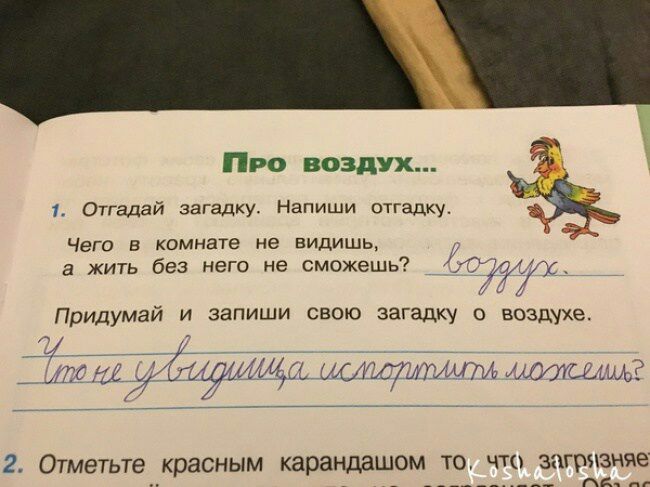 Про воздух...
1. Отгадай загадку. Напиши отгадку.
Чего в комнате не видишь,
а жить без него не сможешь? воздух.
Придумай и запиши свою загадку о воздухе.
Что не увидищ,а испортить можешь?
2. Отметьте красным карандашом то, что загрязняе
Koshalosha